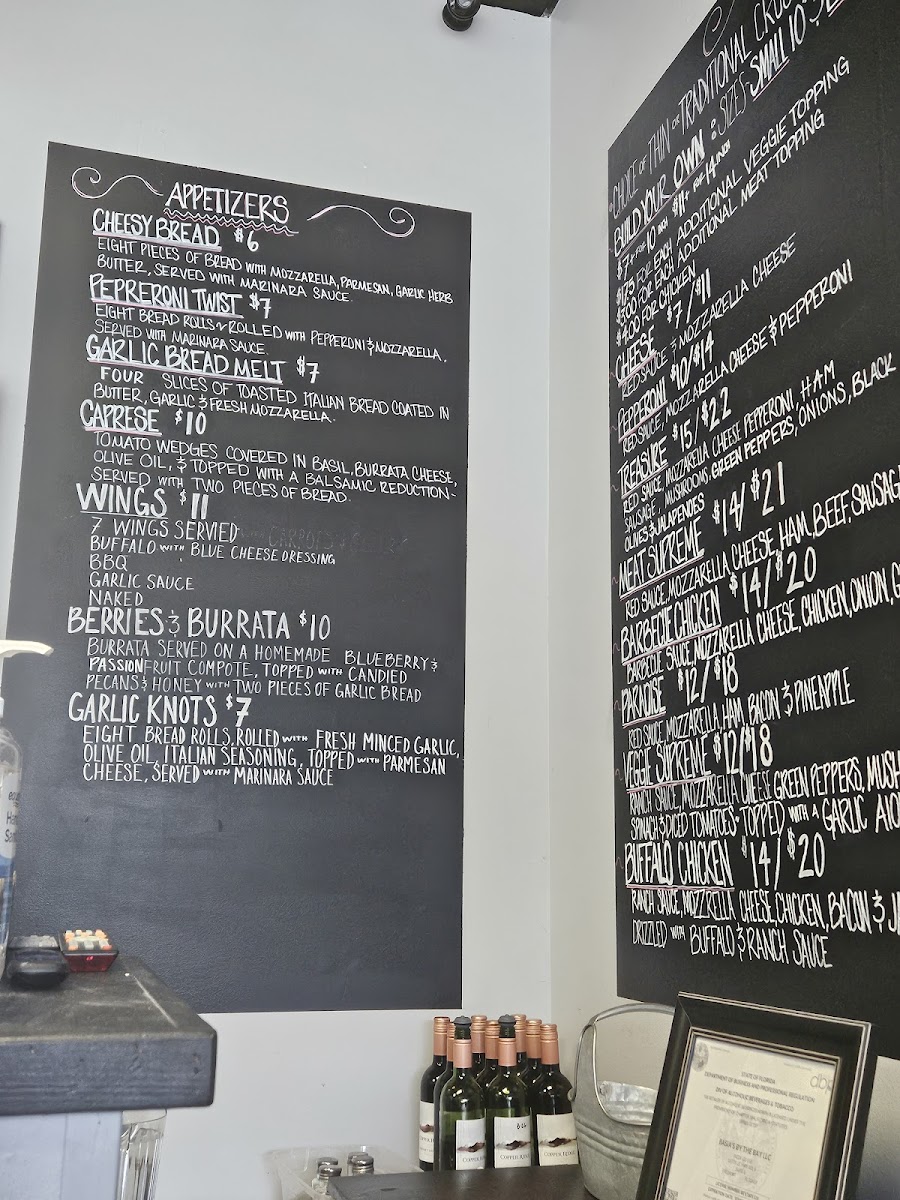 APPETIZERS
CHEESY BREAD $6
EIGHT PIECES OF BREAD WITH MOZZARELLA, PARMESAN, GARLIC HERB
BUTTER, SERVED WITH MARINARA SAUCE.
PEPRERONI TWIST $7
EIGHT BREAD ROLLS ROLLED WITH PEPPERONI & MOZZARELLA.
SERVED WITH MARINARA SAUCE.
GARLIC BREAD MELT $7
FOUR SLICES OF TOASTED ITALIAN BREAD COATED IN
BUTTER, GARLIC & FRESH MOZZARELLA.
CAPRESE $10
TOMATO WEDGES COVERED IN BASIL, BURRATA CHEESE,
OLIVE OIL, & TOPPED WITH A BALSAMIC REDUCTION-
SERVED WITH TWO PIECES OF BREAD.
WINGS $11
7 WINGS SERVIED
BUFFALO WITH BLUE CHEESE DRESSING
BBQ
GARLIC SAUCE
NAKED
BERRIES & BURRATA $10
BURRATA SERVED ON A HOMEMADE BLUEBERRY &
PASSIONFRUIT COMPOTE, TOPPED WITH CANDIED
PECANS & HONEY WITH TWO PIECES OF GARLIC BREAD
GARLIC KNOTS $7
EIGHT BREAD ROLLS, ROLLED WITH FRESH MINCED GARLIC,
OLIVE OIL, ITALIAN SEASONING, TOPPED WITH PARMESAN
CHEESE, SERVED WITH MARINARA SAUCE
CHOICE OF THIN OR TRADITIONAL CRUS
BUILD YOUR OWN : SIZES- SMALL 10" &
$7 FOR 10 INCH $11 FOR 14 INCH
$1.75 FOR EACH ADDITIONAL VEGGIE TOPPING
$3.00 FOR EACH ADDITIONAL MEAT TOPPING
$4.00 FOR CHICKEN
CHEESE $7/$11
RED SAUCE & MOZZARELLA CHEESE
PEPPERONI $10/$14
RED SAUCE, MOZZARELLA CHEESE & PEPPERONI
TREASURE $15/$22
RED SAUCE, MOZZARELLA CHEESE PEPPERONI, HAM
SAUSAGE, MUSHROOMS, GREEN PEPPERS, ONIONS, BLACK
OLIVES & JALAPENOES
MEAT SUPREME $14/$21
RED SAUCE, MOZZARELLA CHEESE, HAM, BEEF, SAUSAG
BARBECUE CHICKEN $14/$20
BARBECUE SAUCE, MOZZARELLA CHEESE, CHICKEN, ONION, G
PARADISE $12/$18
RED SAUCE, MOZZARELLA, HAM, BACON & PINEAPPLE
VEGGIE SUPREME $12/$18
RANCH SAUCE, MOZZARELLA CHEESE GREEN PEPPERS, MUSH
SPINACH & DICED TOMATOES- TOPPED WITH A GARLIC AIO
BUFFALO CHICKEN $14/$20
RANCH SAUCE, MOZZRELLA CHEESE, CHICKEN, BACON & J
DRIZZLED WITH BUFFALO & RANCH SAUCE
STATE OF FLORIDA
DEPARTMENT OF BUSINESS AND PROFESSIONAL REGULATION
DIV OF ALCOHOLIC BEVERAGES & TOBACCO